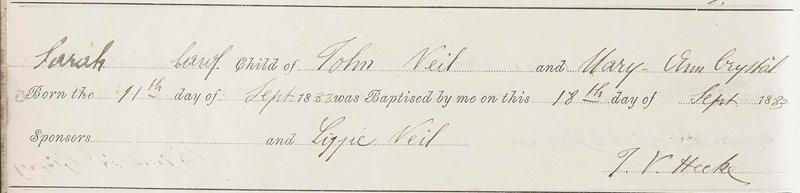 Sarah lawf. Child of John Neil and Mary Ann Crystal
Born the 11th day of Sept. 1883 was Baptised by me on this 18th day of Sept 1883
Sponsors and Lizzie Neil
T. V. Hecke